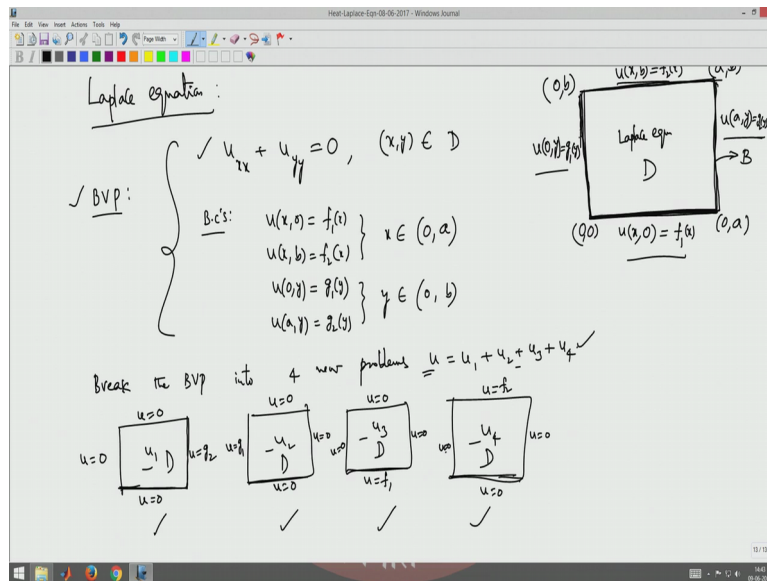 Heat-Laplace-Eqn-08-06-2017 - Windows Journal
File Edit View Insert Actions Tools Help
Page Width
Laplace equation :
✓ u_xx + u_yy = 0, (x,y) ∈ D
✓ BVP :
B.c's: u(x,0) = f₁(x)
u(x,b) = f₂(x) } x ∈ (0,a)
u(0,y) = g₁(y)
u(a,y) = g₂(y) } y ∈ (0, b)
(0,b) u(x,b)=f₂(x)
u(0,y)=g₁(y) Laplace eqn u(a,y)=g₂(y)
D → B
(0,0) u(x,0) = f₁(x) (0,a)
Break the BVP into 4 new problems u = u₁ + u₂ + u₃ + u₄ ✓
u=0 u=0 u=0 u=f₂
u=0 u₁ D u=g₂ u=g₁ u₂ D u=0 u=0 u₃ D u=0 u=0 u₄ D u=0
u=0 u=0 u=f₁ u=0
✓ ✓ ✓ ✓
13 / 13
14:43